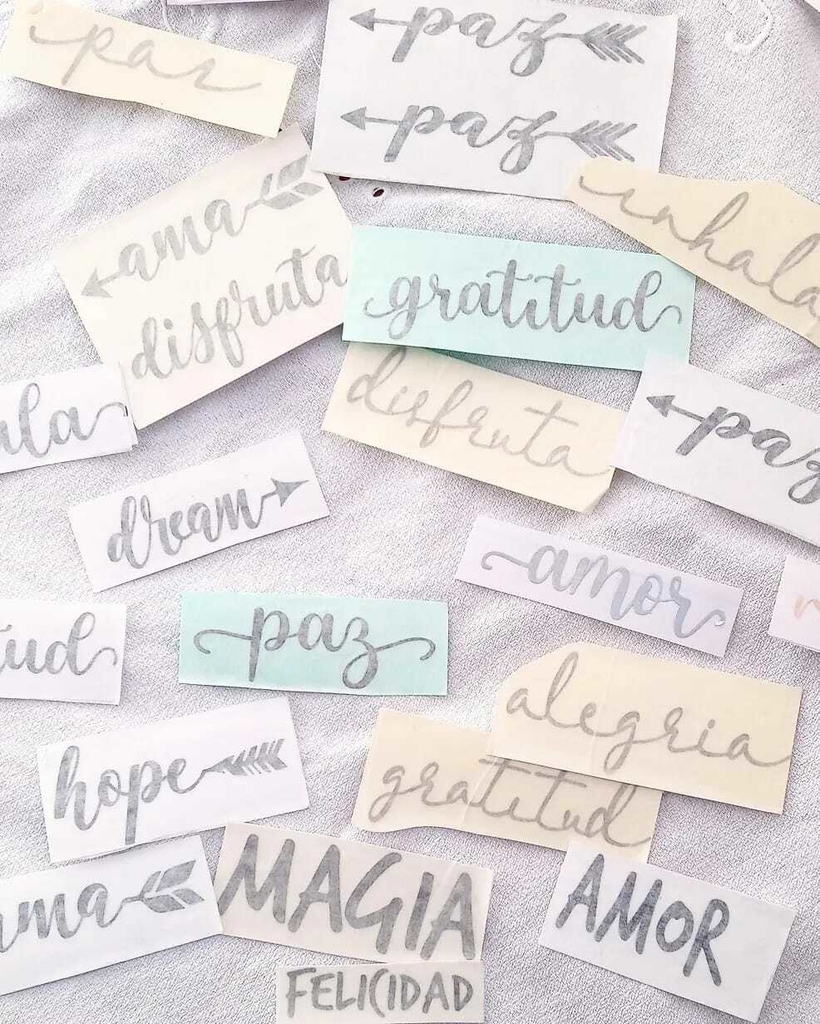 paz
paz
paz
inhala
ama
disfruta
gratitud
disfruta
paz
dream
amor
paz
alegria
hope
gratitud
ama
MAGIA
AMOR
FELICIDAD